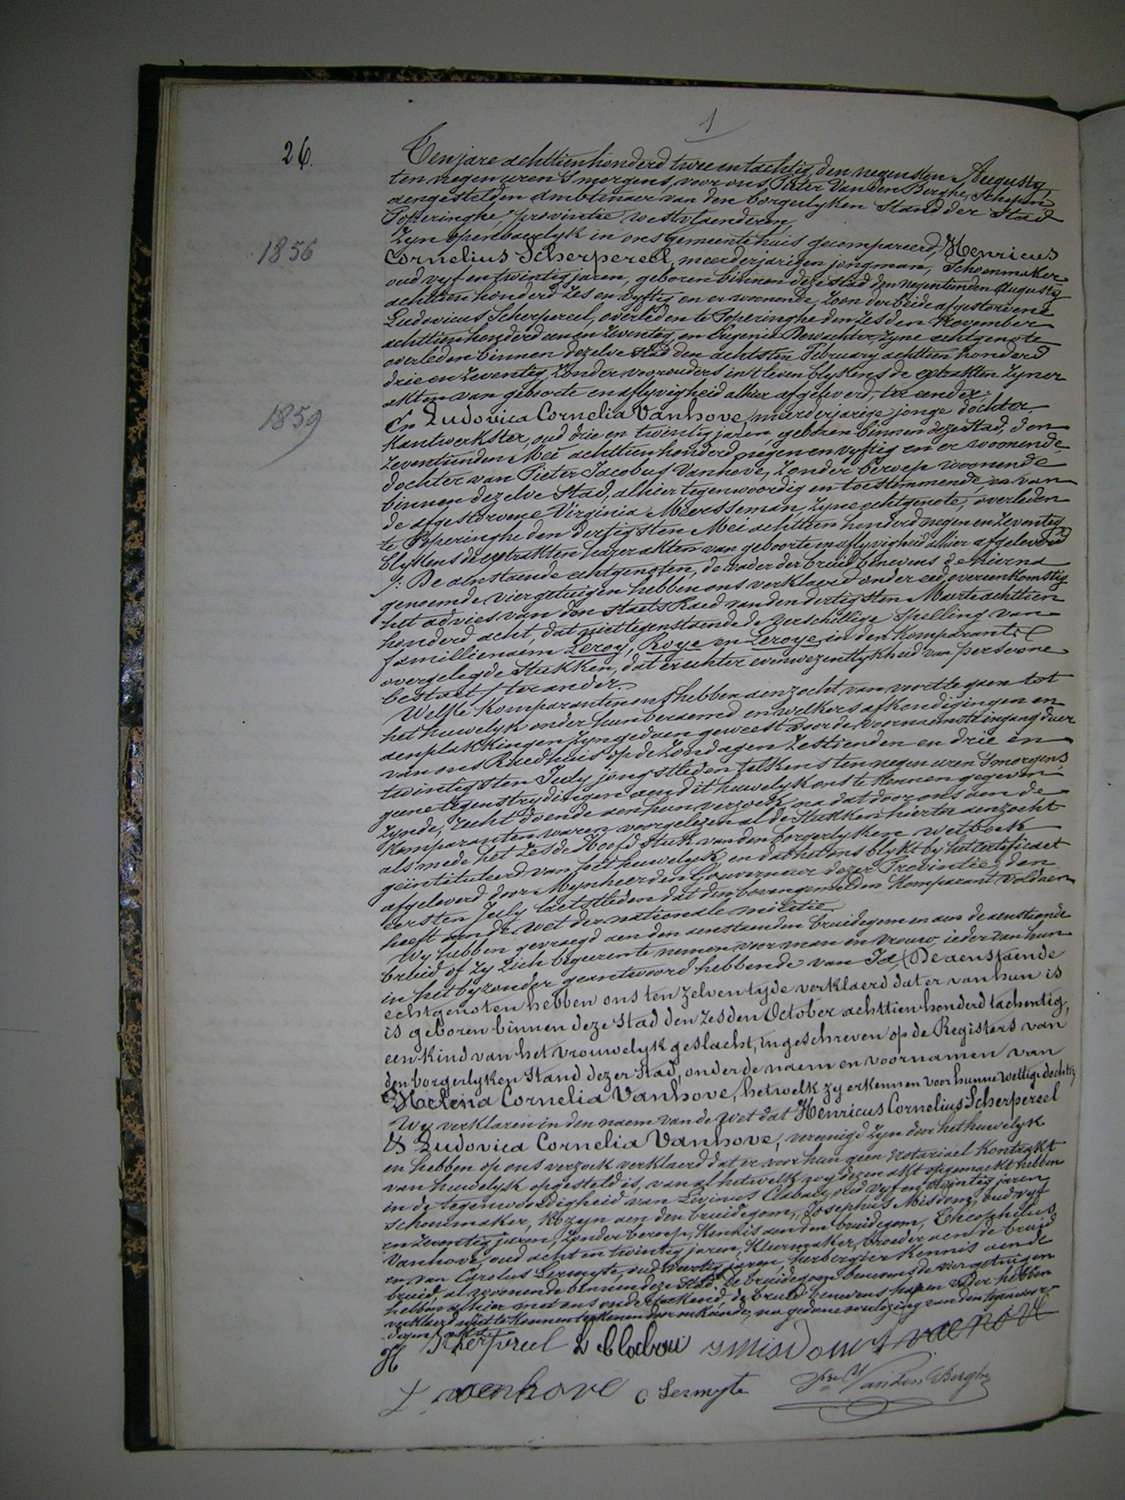 1
26.
Ten jare achttienhonderd twee en tachtig, den negensten Augusty
ten negen uren 's morgens, voor ons, Pieter Van den Berghe, Schepen
aengestelden Ambtenaer van den borgerlyken Stand der Stad
Poperinghe, provintie westvlaenderen,
Zyn openbaerlyk in ons gemeentehuis gecompareerd, Henricus
1856
Cornelius Scherpereel, meerderjarigen jongman, Schoenmaker
oud vyf en twintig jaren, geboren binnen deze stad den negentienden Augusty
achttien honderd zes en vyftig en er woonende, zoon der beide afgestorvene
Ludovicus Scherpereel, overleden te Poperinghe den zesden November
achttien honderd een en zeventig, en Eugenia Dewachter, zyne echtgenote
overleden binnen dezelve stad den achtsten February achttien honderd
drie en zeventig, zonder voorouders in 't leven blykens de extrakten zyner
akten van geboorte en aflyvigheid alhier afgeleverd, ter eender.
1859
En Ludovica Cornelia Vanhove, meerderjarige jonge dochter
Kantwerkster, oud drie en twintig jaren, geboren binnen deze stad, den
zeventienden Mei achttienhonderd negen en vyftig en er woonende,
dochter van Pieter Jacobus Vanhove, zonder beroep woonende
binnen dezelve Stad, alhier tegenwoordig en toestemmende, en van
de afgestorvene Virginia Meersseman, zyne echtgenote, overleden
te Poperinghe den dertigsten Mei achttien honderd negen en zeventig
blykens de extrakten harer akten van geboorte en aflyvigheid alhier afgeleverd
/: De aenstaende echtgenoten, de vader der bruid benevens de hierna
genoemde vier getuigen hebben ons verklaerd onder eed, overeenkomstig
het advies van den Staets Raed van den dertigsten Maerte achttien
honderd acht, dat niettegenstaende de verschillige Spelling van
familienaem Leroy, Roye en Leroye in den Komparanti
overgelegde Stukken, dat er echter eenwezentlykheid van persoone
bestaet / ter ander.
Welke Komparanten ons hebben aenzocht van voort te gaen tot
het huwelyk onder hun beraemd en welkers afkondigingen en
aenplakkingen zyn gedaen geweest voor de voornaemste ingang daer
van ons Raedhuis op de Zondagen zestienden en drie en
twintigsten July jongstleden telkens ten negen uren 's morgens
geene tegenstrydigheden aen dit huwelyk ons te kennen gegeven
zynde, recht doende aen hun verzoek, na dat door ons aen de
Komparanten waren voorgelezen al de Stukken hierin aenzocht
als mede het zesde Hoofdstuk van den borgerlyken Wetboek
geintituleerd van het huwelyk en dat het ons blykt by het certificaet
afgeleverd door Mynheer den Gouverneur dezer Provintie, den
eersten July laetstleden dat den bovengemelden Komparant voldaen
heeft aen de wet der nationale militie.
Wy hebben gevraegd aen den aenstaenden bruidegom en aen de aenstaende
bruid of zy zich begeerente nemen voor man en vrouw, ieder van hun
in het byzonder geantwoord hebbende van Ja, De aenstaende
echtgenoten hebben ons ten zelven tyde verklaerd dat er van hun is
is geboren binnen deze Stad den zesden October achttien honderd tachentig,
een kind van het vrouwelyk geslacht, ingeschreven op de Registers van
den borgerlyken Stand dezer Stad, onder de naem en voornamen van
Helena Cornelia Vanhove, hetwelk zy erkennen voor hunne wettige dochter,
Wy verklaren in den naem van de Wet dat Henricus Cornelius Scherpereel
& Ludovica Cornelia Vanhove, vereenigd zyn door het huwelyk
en hebben op ons verzoek verklaerd dat er voor hun geen notariael Kontrakt
van huwelyk opgesteld is, van al hetwelk wy dezen akt opgemaekt hebben
in de tegenwoordigheid van Livinus Clabau, oud vyf en twintig jaren
schoenmaker, Kozyn aen den bruidegom, Josephus Misdom, oud vyf
en zeventig jaren, zonder beroep, Kennis aen den bruidegom, Theophilus
Vanhove, oud acht en twintig jaren, Kleermaker, broeder aen de bruid
en van Carolus Lermyte, oud veertig jaren, herbergier kennis aen de
bruid, al woonende binnen deze Stad. De bruidegom benevens de vier getuigen
hebben alhier met ons onderteekend, de bruid benevens haren vader hebben
verklaerd niet te kunnen teekenen door onkunde, na gedane voorlezing van den tegenwoor-
digen akt.
H Scherpereel L Clabau J misdom T vanhove
L vanhove C Lermyte Pre Vanden Berghe